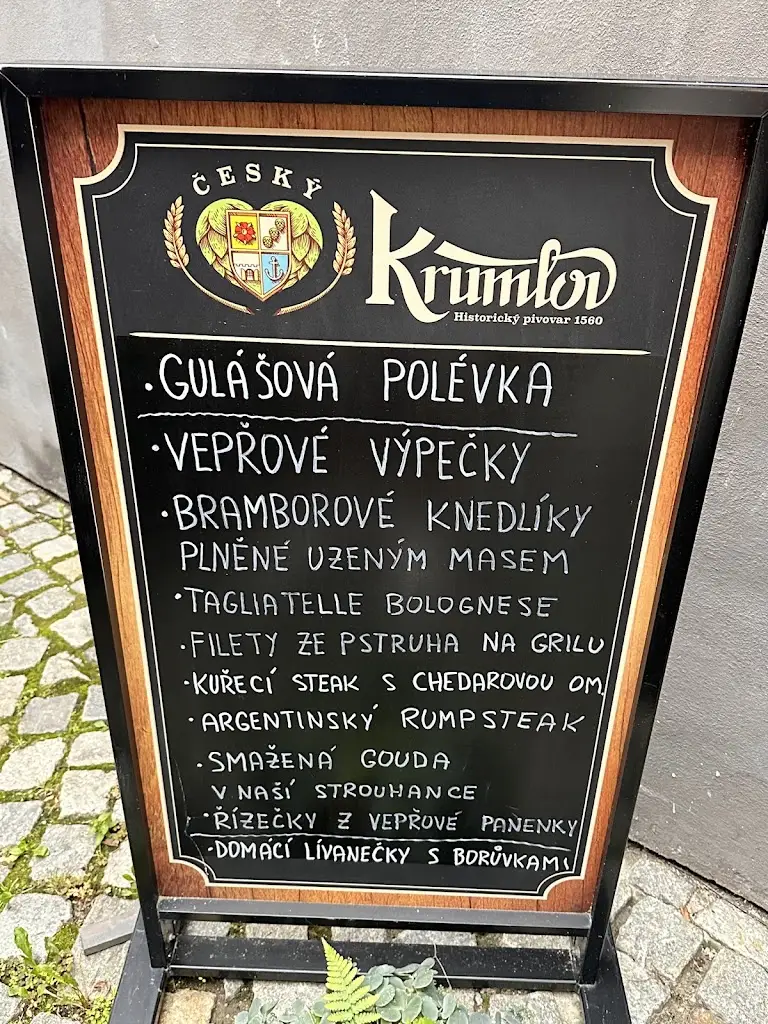 ČESKÝ
Krumlov
Historický pivovar 1560
• GULÁŠOVÁ POLÉVKA
• VEPŘOVÉ VÝPEČKY
• BRAMBOROVÉ KNEDLÍKY
PLNĚNÉ UZENÝM MASEM
• TAGLIATELLE BOLOGNESE
• FILETY ZE PSTRUHA NA GRILU
• KUŘECÍ STEAK S CHEDAROVOU OM
• ARGENTINSKÝ RUMPSTEAK
• SMAŽENÁ GOUDA
V NAŠÍ STROUHANCE
• ŘÍZEČKY Z VEPŘOVÉ PANENKY
• DOMÁCÍ LÍVANEČKY S BORŮVKAMI